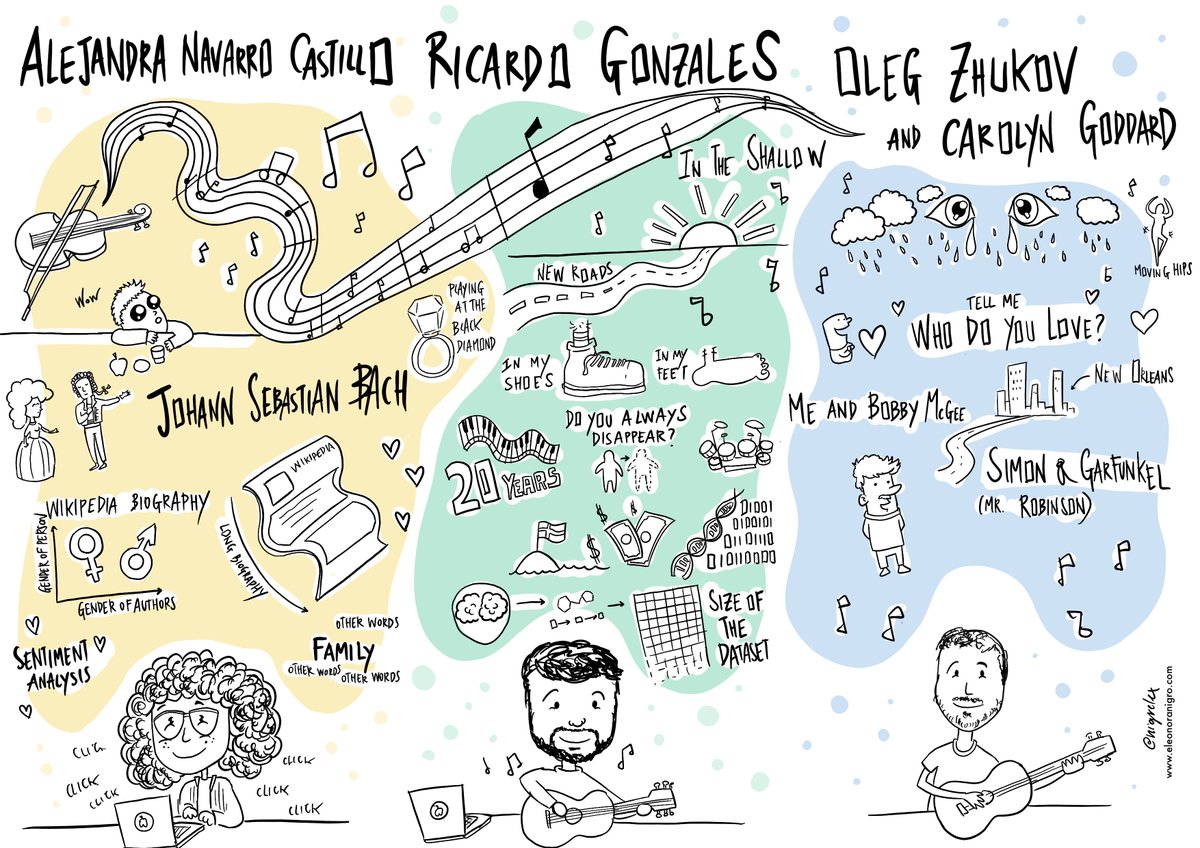 ALEJANDRA NAVARRO CASTILLO
WOW
PLAYING
AT THE
BLACK
DIAMOND
JOHANN SEBASTIAN BACH
WIKIPEDIA
WIKIPEDIA BIOGRAPHY
GENDER OF PERSON
GENDER OF AUTHORS
LONG BIOGRAPHY
SENTIMENT
ANALYSIS
OTHER WORDS
FAMILY
OTHER WORDS
OTHER WORDS
CLICK
CLICK
CLICK
CLICK
CLICK
CLICK
RICARDO GONZALES
IN THE SHALLOW
NEW ROADS
IN MY
SHOES
IN MY
FEET
DO YOU ALWAYS
DISAPPEAR?
20 YEARS
$
$
$
010110
010101
010110
0110110
SIZE OF
THE
DATASET
OLEG ZHUKOV
AND CAROLYN GODDARD
MOVING HIPS
TELL ME
WHO DO YOU LOVE?
NEW ORLEANS
ME AND BOBBY MCGEE
SIMON & GARFUNKEL
(MR. ROBINSON)
@nigrelex
www.eleonoranigro.com